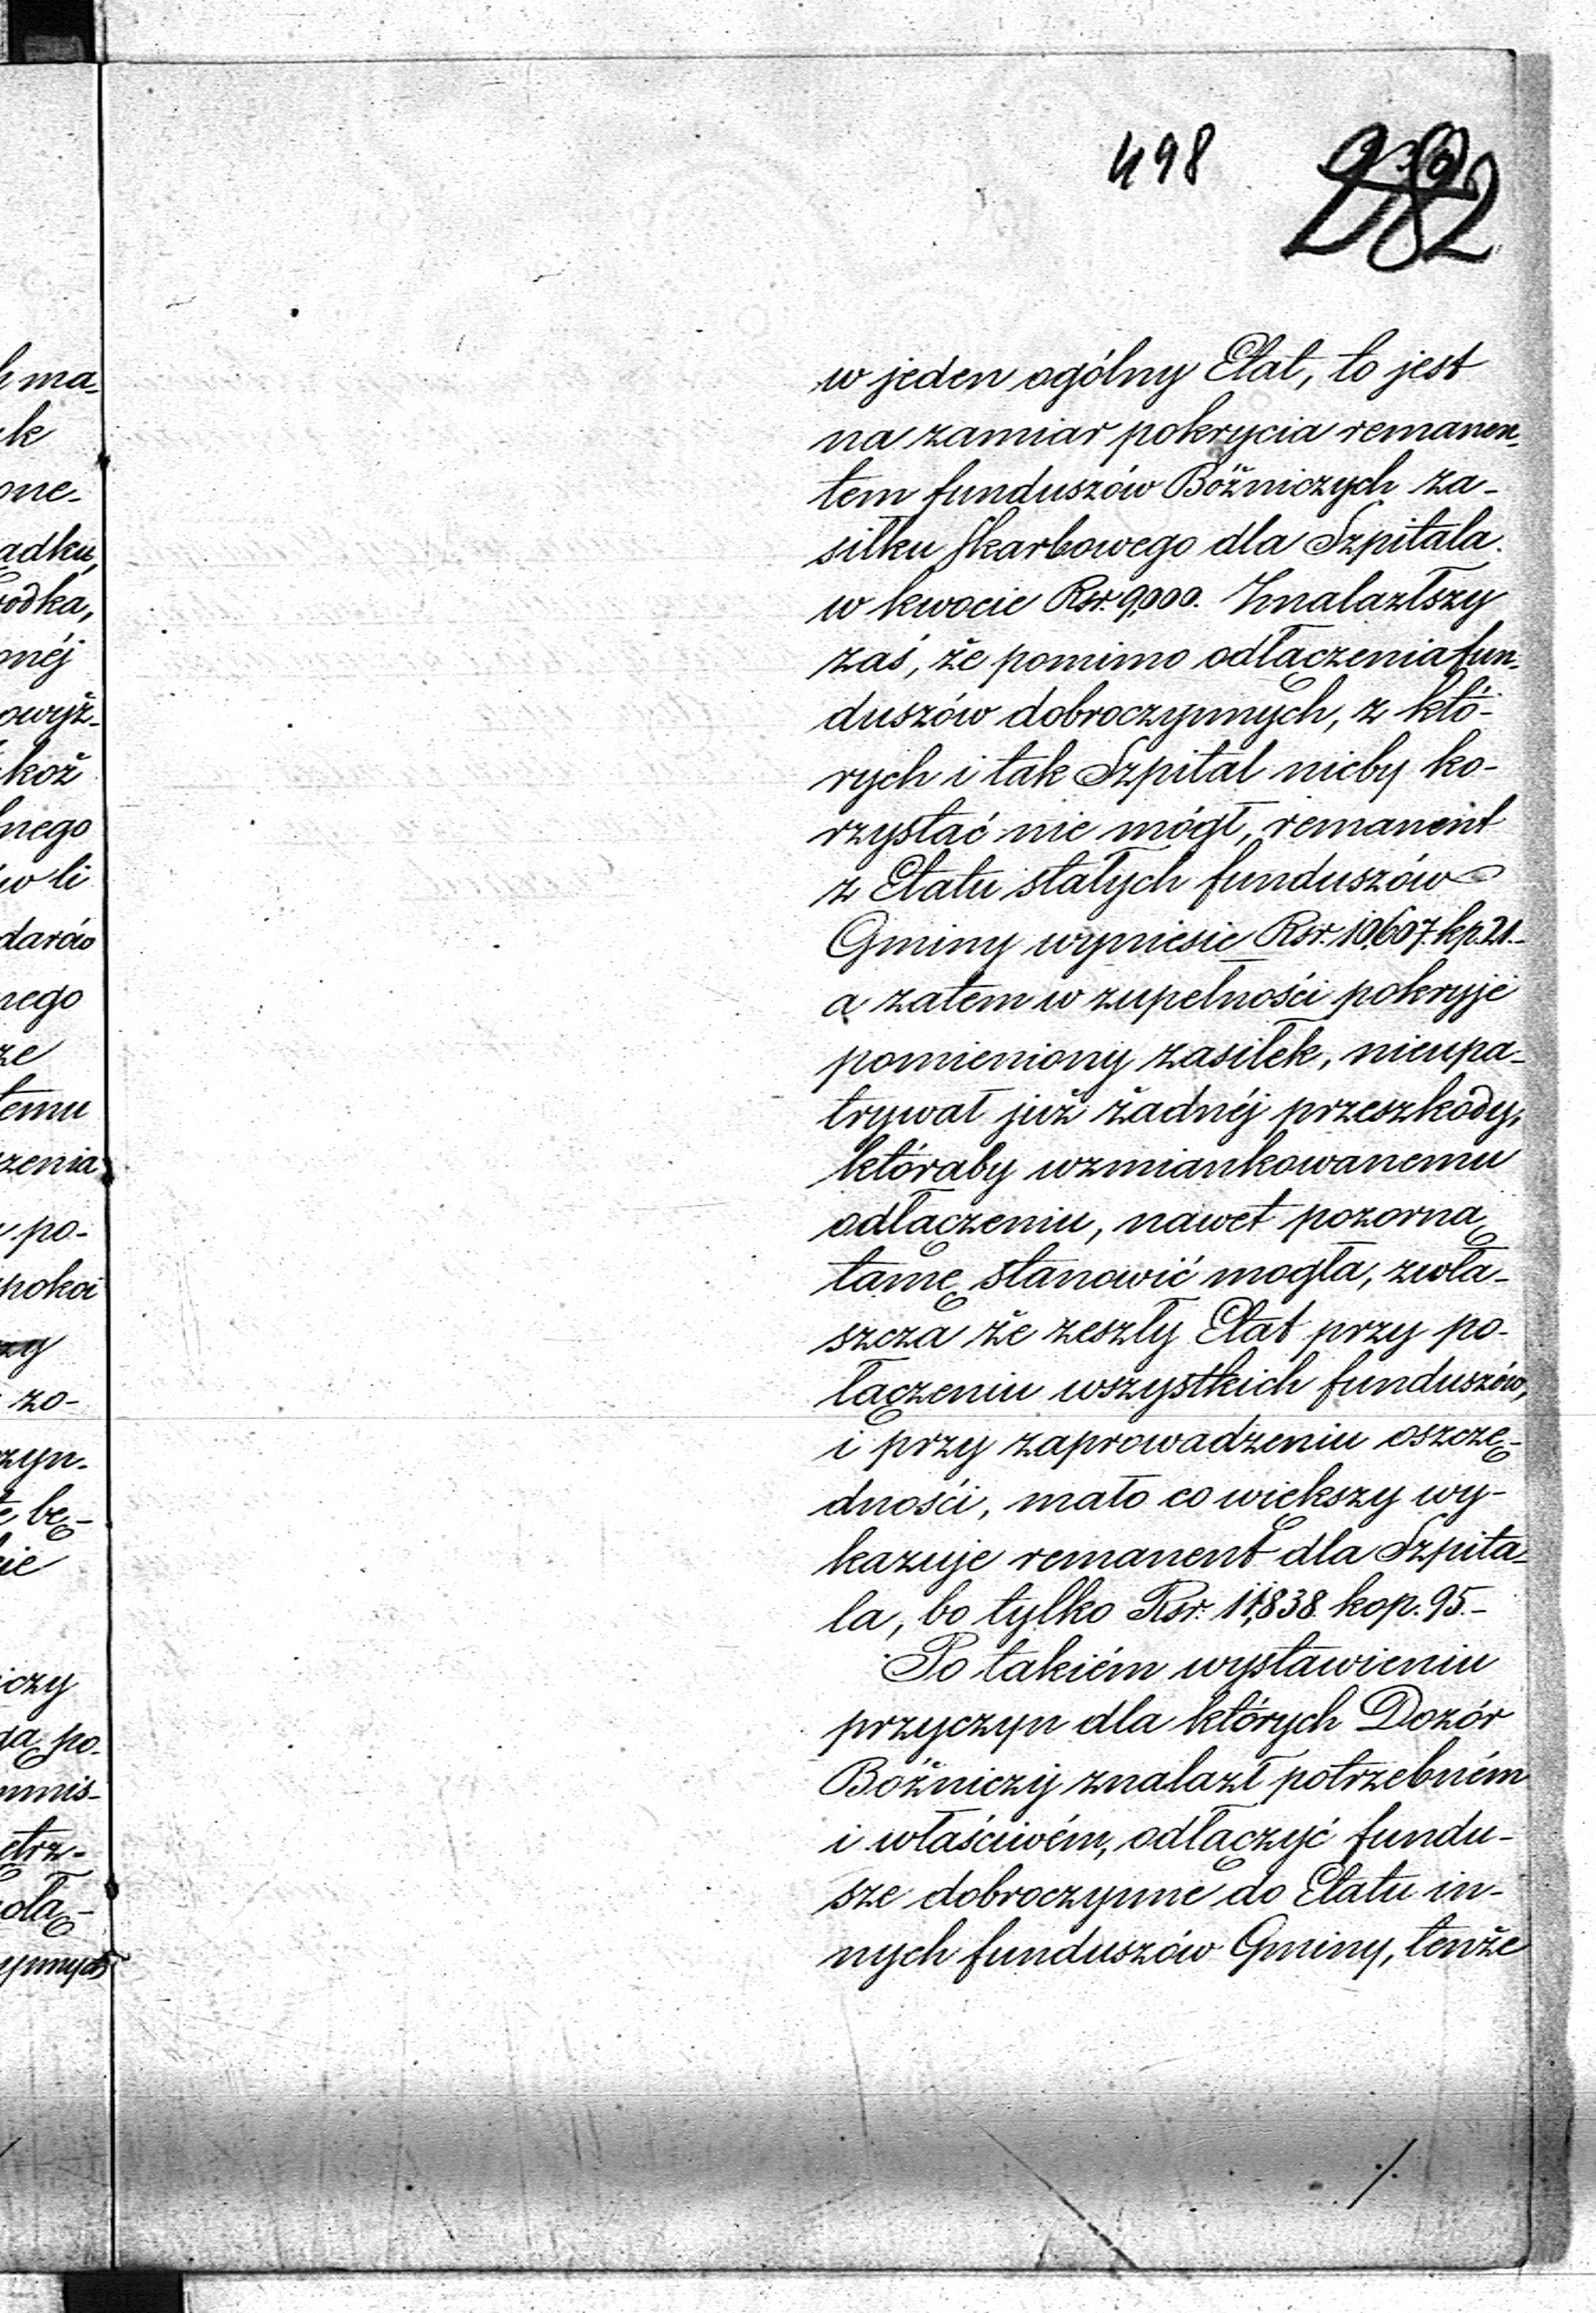 498
282
w jeden ogólny Etat, to jest
na zamiar pokrycia remanen-
tem funduszów Bóżniczych za-
siłku Skarbowego dla Szpitala
w kwocie Rsr. 9,000. Znalazłszy
zaś, że pomimo odłączenia fun-
duszów dobroczynnych, z któ-
rych i tak Szpital nicby ko-
rzystać nie mógł, remanent
z Etatu stałych funduszów
Gminy wyniesie Rsr. 10,607. kp. 21.-
a zatem w zupełności pokryje
pomieniony zasiłek, nieupa-
trywał już żadnéj przeszkody,
któraby wzmiankowanemu
odłączeniu, nawet pozorną
tamę stanowić mogła, zwła-
szcza że zeszły Etat przy po-
łączeniu wszystkich funduszów,
i przy zaprowadzeniu oszczę-
dności, mało co większy wy-
kazuje remanent dla Szpita-
la, bo tylko Rsr. 11,838. kop. 95.-
Po takiém wystawieniu
przyczyn dla których Dozór
Bóżniczy znalazł potrzebném
i właściwém, odłączyć fundu-
sze dobroczynne do Etatu in-
nych funduszów Gminy, tenże
./.
h ma-
one-
adku,
odka,
onéj
owyż-
koż
lnego
w li
darów
nego
że
temu
zenia
po-
zy
zo-
czyn-
bę-
cie
iczy
po-
mmis-
etrz-
ołą-
ynnych